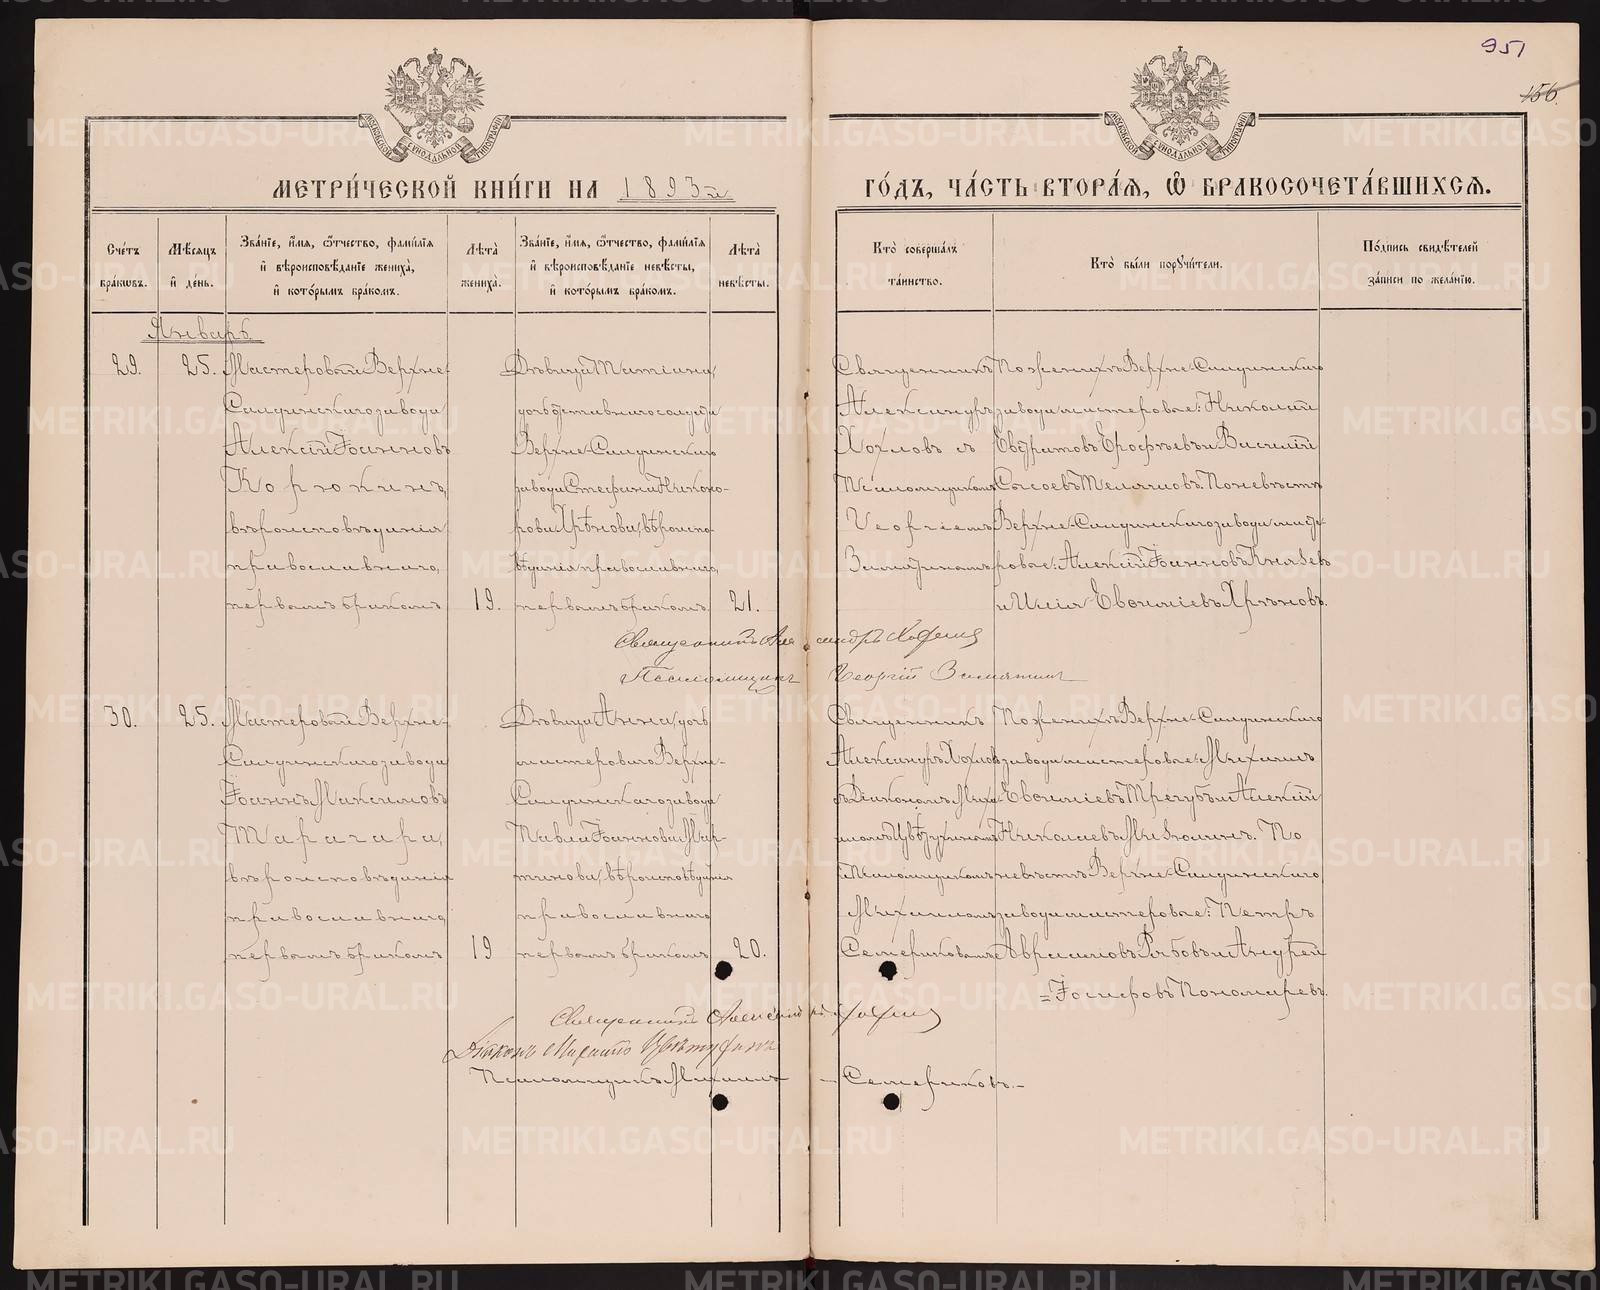 951
156.
МОСКОВСКОЙ СѴНОДАЛЬНОЙ ТИПОГРАФІИ
МОСКОВСКОЙ СѴНОДАЛЬНОЙ ТИПОГРАФІИ
МЕТРИ́ЧЕСКОЙ КНИ́ГИ НА 1893й
ГО́ДЪ, ЧА́СТЬ ВТОРА́Ѧ, Ѽ БРАКОСОЧЕТА́ВШИХСѦ.
Сче́тъ бра́кѡвъ.
Мѣ́сѧцъ и҆ де́нь.
Зва́нїе, и҆́мѧ, ѻ҆́тчество, фами́лїѧ и҆ вѣроисповѣ́данїе жениха̀, и҆ кото́рымъ бра́комъ.
Лѣ́та жениха̀.
Зва́нїе, и҆́мѧ, ѻ҆́тчество, фами́лїѧ и҆ вѣроисповѣ́данїе невѣ́сты, и҆ кото́рымъ бра́комъ.
Лѣ́та невѣ́сты.
Кто̀ соверша́лъ та́инство.
Кто̀ бы́ли порꙋчи́тели.
По́дпись свидѣ́телей за́писи по жела́нїю.
Январь
29.
25.
Мастеровый Верхне-
Салдинскаго завода
Алексій Іоанновъ
Корюкинъ,
вѣроисповѣданія
православнаго,
первымъ бракомъ
19.
Дѣвица Татіана,
дочь отставнаго солдата
Верхне-Салдинскаго
завода Стефана Никано-
рова Хрѣнова, вѣроиспо-
вѣданія православнаго,
первымъ бракомъ
21.
Священникъ
Александръ
Хохловъ съ
Псаломщикомъ
Георгіемъ
Замятинымъ
По женихѣ Верхне-Салдинскаго
завода мастеровые: Николай
Евфратовъ Ерофѣевъ и Василій
Сысоевъ Телячковъ. По невѣстѣ
Верхне-Салдинскаго завода масте-
ровые: Алексій Іоанновъ Князевъ
и Илія Евфиміевъ Хрѣновъ.
Священникъ Александръ Хохловъ
Псаломщикъ Георгій Замятинъ
30.
25.
Мастеровый Верхне-
Салдинскаго завода
Іоаннъ Максимовъ
Тарагара,
вѣроисповѣданія
православнаго
первымъ бракомъ
19
Дѣвица Анна, дочь
мастероваго Верхне-
Салдинскаго завода
Павла Іоаннова Мар-
тинова, вѣроисповѣданія
православнаго
первымъ бракомъ
20.
Священникъ
Александръ Хохловъ
съ Діакономъ Миха-
иломъ Цвѣтухинымъ
и Псаломщикомъ
Михаиломъ
Семериковымъ
По женихѣ Верхне-Салдинскаго
завода мастеровые: Михаилъ
Евфиміевъ Трегубъ и Алексій
Николаевъ По
невѣстѣ Верхне-Салдинскаго
завода мастеровые: Петръ
Авраамовъ Рябовъ и Андрей
=Іосифовъ Пономаревъ.
Священникъ Александръ Хохловъ
Діаконъ Михаилъ Цвѣтухинъ
Псаломщикъ Михаилъ – Семериковъ.–
METRIKI.GASO-URAL.RU